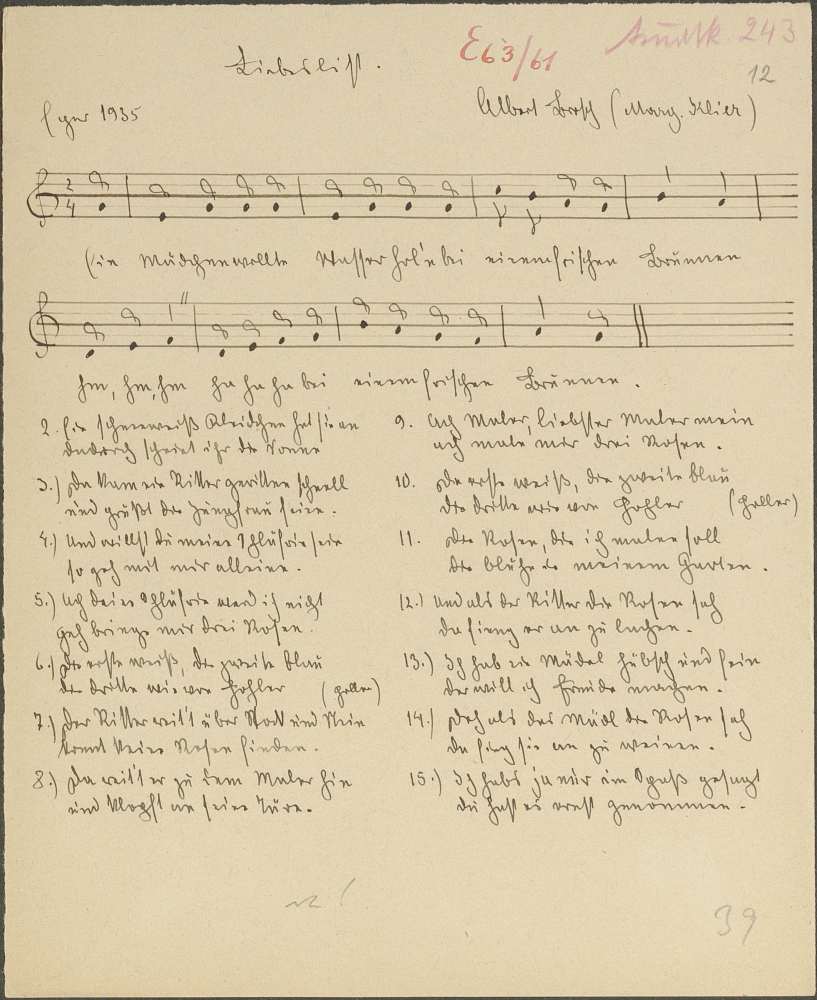 Liebeslist.
E63/61
243
12
Eger 1935
Albert Brosch (Marg. Klier)
2
4
Ein Mädchen wollte Wasser hol'n bei einem frischen Brunnen
hm, hm, hm ha ha ha bei einem frischen Brunnen.
2. Ein schneeweiß Kleidchen hat sie an
dadurch scheint ihr die Sonne
3.) Da kam ein Ritter geritten schnell
und grüßt die Jungfrau feine.
4.) Und willst du meine sein
so geh mit mir alleine.
5.) Ach deine werd ich nicht
geh bringe mir drei Rosen.
6.) Die erste weiß, die zweite blau
die dritte wie von
7.) Der Ritter reit't über Stock und Stein
konnt keine Rosen finden.
8.) Da reit't er zu dem Maler hin
und klopft an seine Türe.
9. Ach Maler, liebster Maler mein
ach male mir drei Rosen.
10. Die erste weiß, die zweite blau
die dritte wie von
11. Die Rosen, die ich malen soll
die blühen in meinem Garten.
12.) Und als der Ritter die Rosen sah
da fieng er an zu lachen.
13.) Ich hab ein Mädel hübsch und fein
der will ich Freude machen.
14.) Doch als das Mädl die Rosen sah
da fing sie an zu weinen.
15.) Ich habs ja nur im Spaß gesagt
du hast es ernst genommen.
39